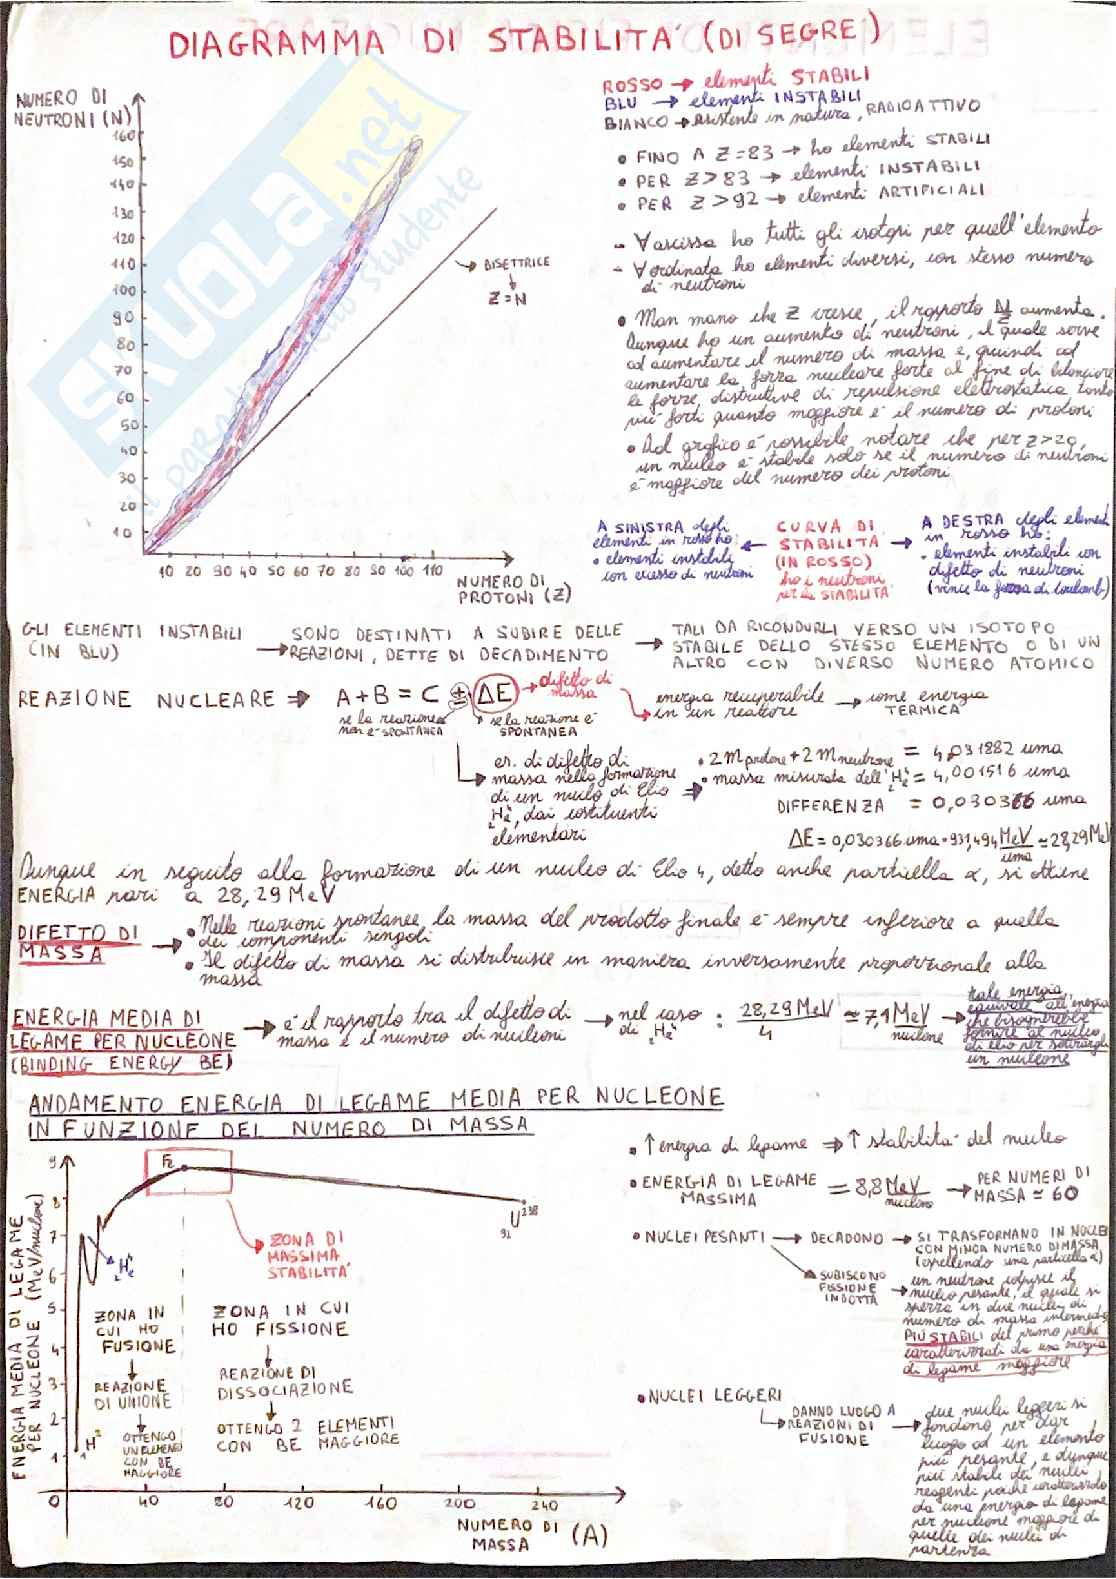 DIAGRAMMA DI STABILITA' (DI SEGRE)
NUMERO DI
NEUTRONI (N)
160
150
140
130
120
110
100
90
80
70
60
50
40
30
20
10
10 20 30 40 50 60 70 80 90 100 110
NUMERO DI
PROTONI (Z)
BISETTRICE
Z=N
SKUOLA.net
ROSSO → elementi STABILI
BLU → elementi INSTABILI
BIANCO → esistente in natura, RADIOATTIVO
• FINO A Z=83 → ho elementi STABILI
• PER Z>83 → elementi INSTABILI
• PER Z>92 → elementi ARTIFICIALI
- ∀ ascissa ho tutti gli isotopi per quell'elemento
- ∀ ordinata ho elementi diversi, con stesso numero
di neutroni
• Man mano che Z cresce, il rapporto N/Z aumenta.
Dunque ho un aumento di neutroni, il quale serve
ad aumentare il numero di massa e, quindi ad
aumentare la forza nucleare forte al fine di bilanciare
le forze distruttive di repulsione elettrostatica tanto
più forti quanto maggiore è il numero di protoni
• Dal grafico è possibile notare che per Z>20,
un nucleo è stabile solo se il numero di neutroni
è maggiore del numero dei protoni
A SINISTRA degli
elementi in rosso ho:
• elementi instabili
con eccesso di neutroni
CURVA DI
STABILITA'
(IN ROSSO)
ho i neutroni
per la STABILITA'
A DESTRA degli elementi
in rosso ho:
• elementi instabili con
difetto di neutroni
(vince la forza di Coulomb)
GLI ELEMENTI INSTABILI
(IN BLU)
→ SONO DESTINATI A SUBIRE DELLE
REAZIONI, DETTE DI DECADIMENTO
→ TALI DA RICONDURLI VERSO UN ISOTOPO
STABILE DELLO STESSO ELEMENTO O DI UN
ALTRO CON DIVERSO NUMERO ATOMICO
REAZIONE NUCLEARE ⇒ A+B = C ± ΔE → difetto di
massa
se la reazione
non è SPONTANEA
se la reazione è
SPONTANEA
energia recuperabile
in un reattore
→ come energia
TERMICA
es. di difetto di
massa nella formazione
di un nucleo di Elio
₂He⁴, dai costituenti
elementari
⇒ • 2 m protone + 2 m neutrone = 4,031882 uma
• massa misurata dell' ₂He⁴ = 4,001516 uma
DIFFERENZA = 0,030366 uma
ΔE = 0,030366 uma · 931,494 MeV/uma ≃ 28,29 MeV
Dunque in seguito alla formazione di un nucleo di Elio 4, detto anche particella α, si ottiene
ENERGIA pari a 28,29 MeV
DIFETTO DI
MASSA
→ • Nelle reazioni spontanee la massa del prodotto finale è sempre inferiore a quella
dei componenti singoli
• Il difetto di massa si distribuisce in maniera inversamente proporzionale alla
massa
ENERGIA MEDIA DI
LEGAME PER NUCLEONE
(BINDING ENERGY BE)
→ è il rapporto tra il difetto di
massa e il numero di nucleoni
→ nel caso
di ₂He⁴ : 28,29 MeV/4 ≃ 7,1 MeV/nucleone
→ tale energia
equivale all'energia
che bisognerebbe
fornire al nucleo
di elio per sottrargli
un nucleone
ANDAMENTO ENERGIA DI LEGAME MEDIA PER NUCLEONE
IN FUNZIONE DEL NUMERO DI MASSA
ENERGIA MEDIA DI LEGAME
PER NUCLEONE (MeV/nucleone)
9
8
7
6
5
4
3
2
1
0
40 80 120 160 200 240
NUMERO DI
MASSA (A)
Fe
₂He⁴
₁H²
₉₂U²³⁸
ZONA DI
MASSIMA
STABILITA'
ZONA IN
CUI HO
FUSIONE
REAZIONE
DI UNIONE
OTTENGO
UN ELEMENTO
CON BE
MAGGIORE
ZONA IN CUI
HO FISSIONE
REAZIONE DI
DISSOCIAZIONE
OTTENGO 2 ELEMENTI
CON BE MAGGIORE
• ↑ energia di legame ⇒ ↑ stabilità del nucleo
• ENERGIA DI LEGAME
MASSIMA
= 8,8 MeV/nucleone
→ PER NUMERI DI
MASSA ≃ 60
• NUCLEI PESANTI → DECADONO → SI TRASFORMANO IN NUCLEI
CON MINOR NUMERO DI MASSA
(espellendo una particella α)
SUBISCONO
FISSIONE
INDOTTA
→ un neutrone colpisce il
nucleo pesante, il quale si
spezza in due nuclei di
numero di massa intermedio
PIÙ STABILI del primo perché
caratterizzati da una energia
di legame maggiore
• NUCLEI LEGGERI
DANNO LUOGO A
REAZIONI DI
FUSIONE
→ due nuclei leggeri si
fondono per dar
luogo ad un elemento
più pesante, e dunque
più stabile dei nuclei
reagenti poiché caratterizzato
da una energia di legame
per nucleone maggiore di
quelle dei nuclei di
partenza